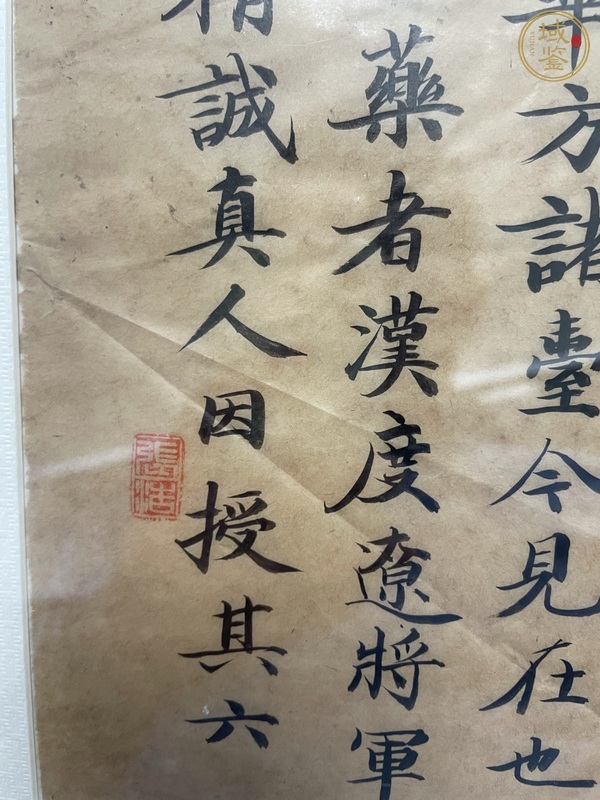 方諸臺今見在也
藥者漢度遼將軍
誠真人因授其六
域鉴